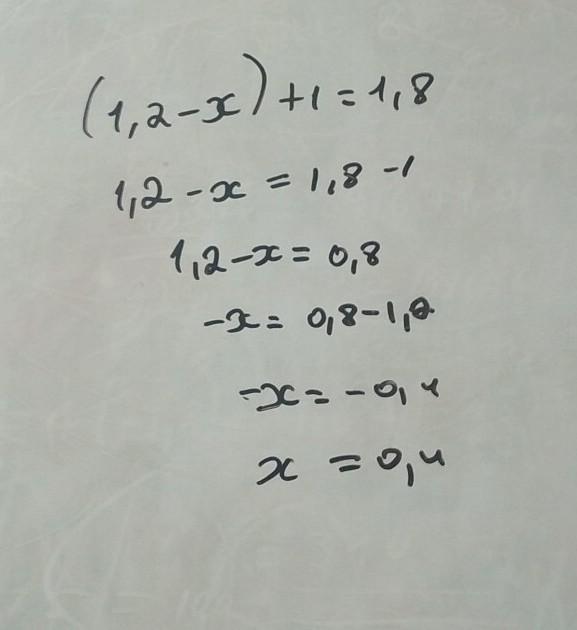 (1,2-x)+1=1,8
1,2-x=1,8-1
1,2-x=0,8
-x=0,8-1,2
-x=-0,4
x=0,4